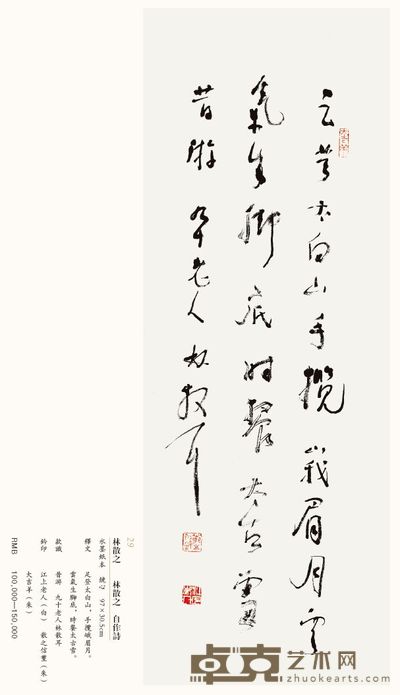 足登太白山手攬峨眉月雲
氣生腳底時襲太古雪
昔游 九十老人林散耳
29
林散之 林散之 自作詩
水墨紙本 鏡心 97×30.5cm
釋文 足登太白山，手攬峨眉月。
雲氣生腳底，時襲太古雪。
款識 昔游 九十老人林散耳
鈐印 江上老人（白） 散之信璽（朱）
大吉羊（朱）
RMB 100,000—150,000
卓克艺术网
zhuokearts.com